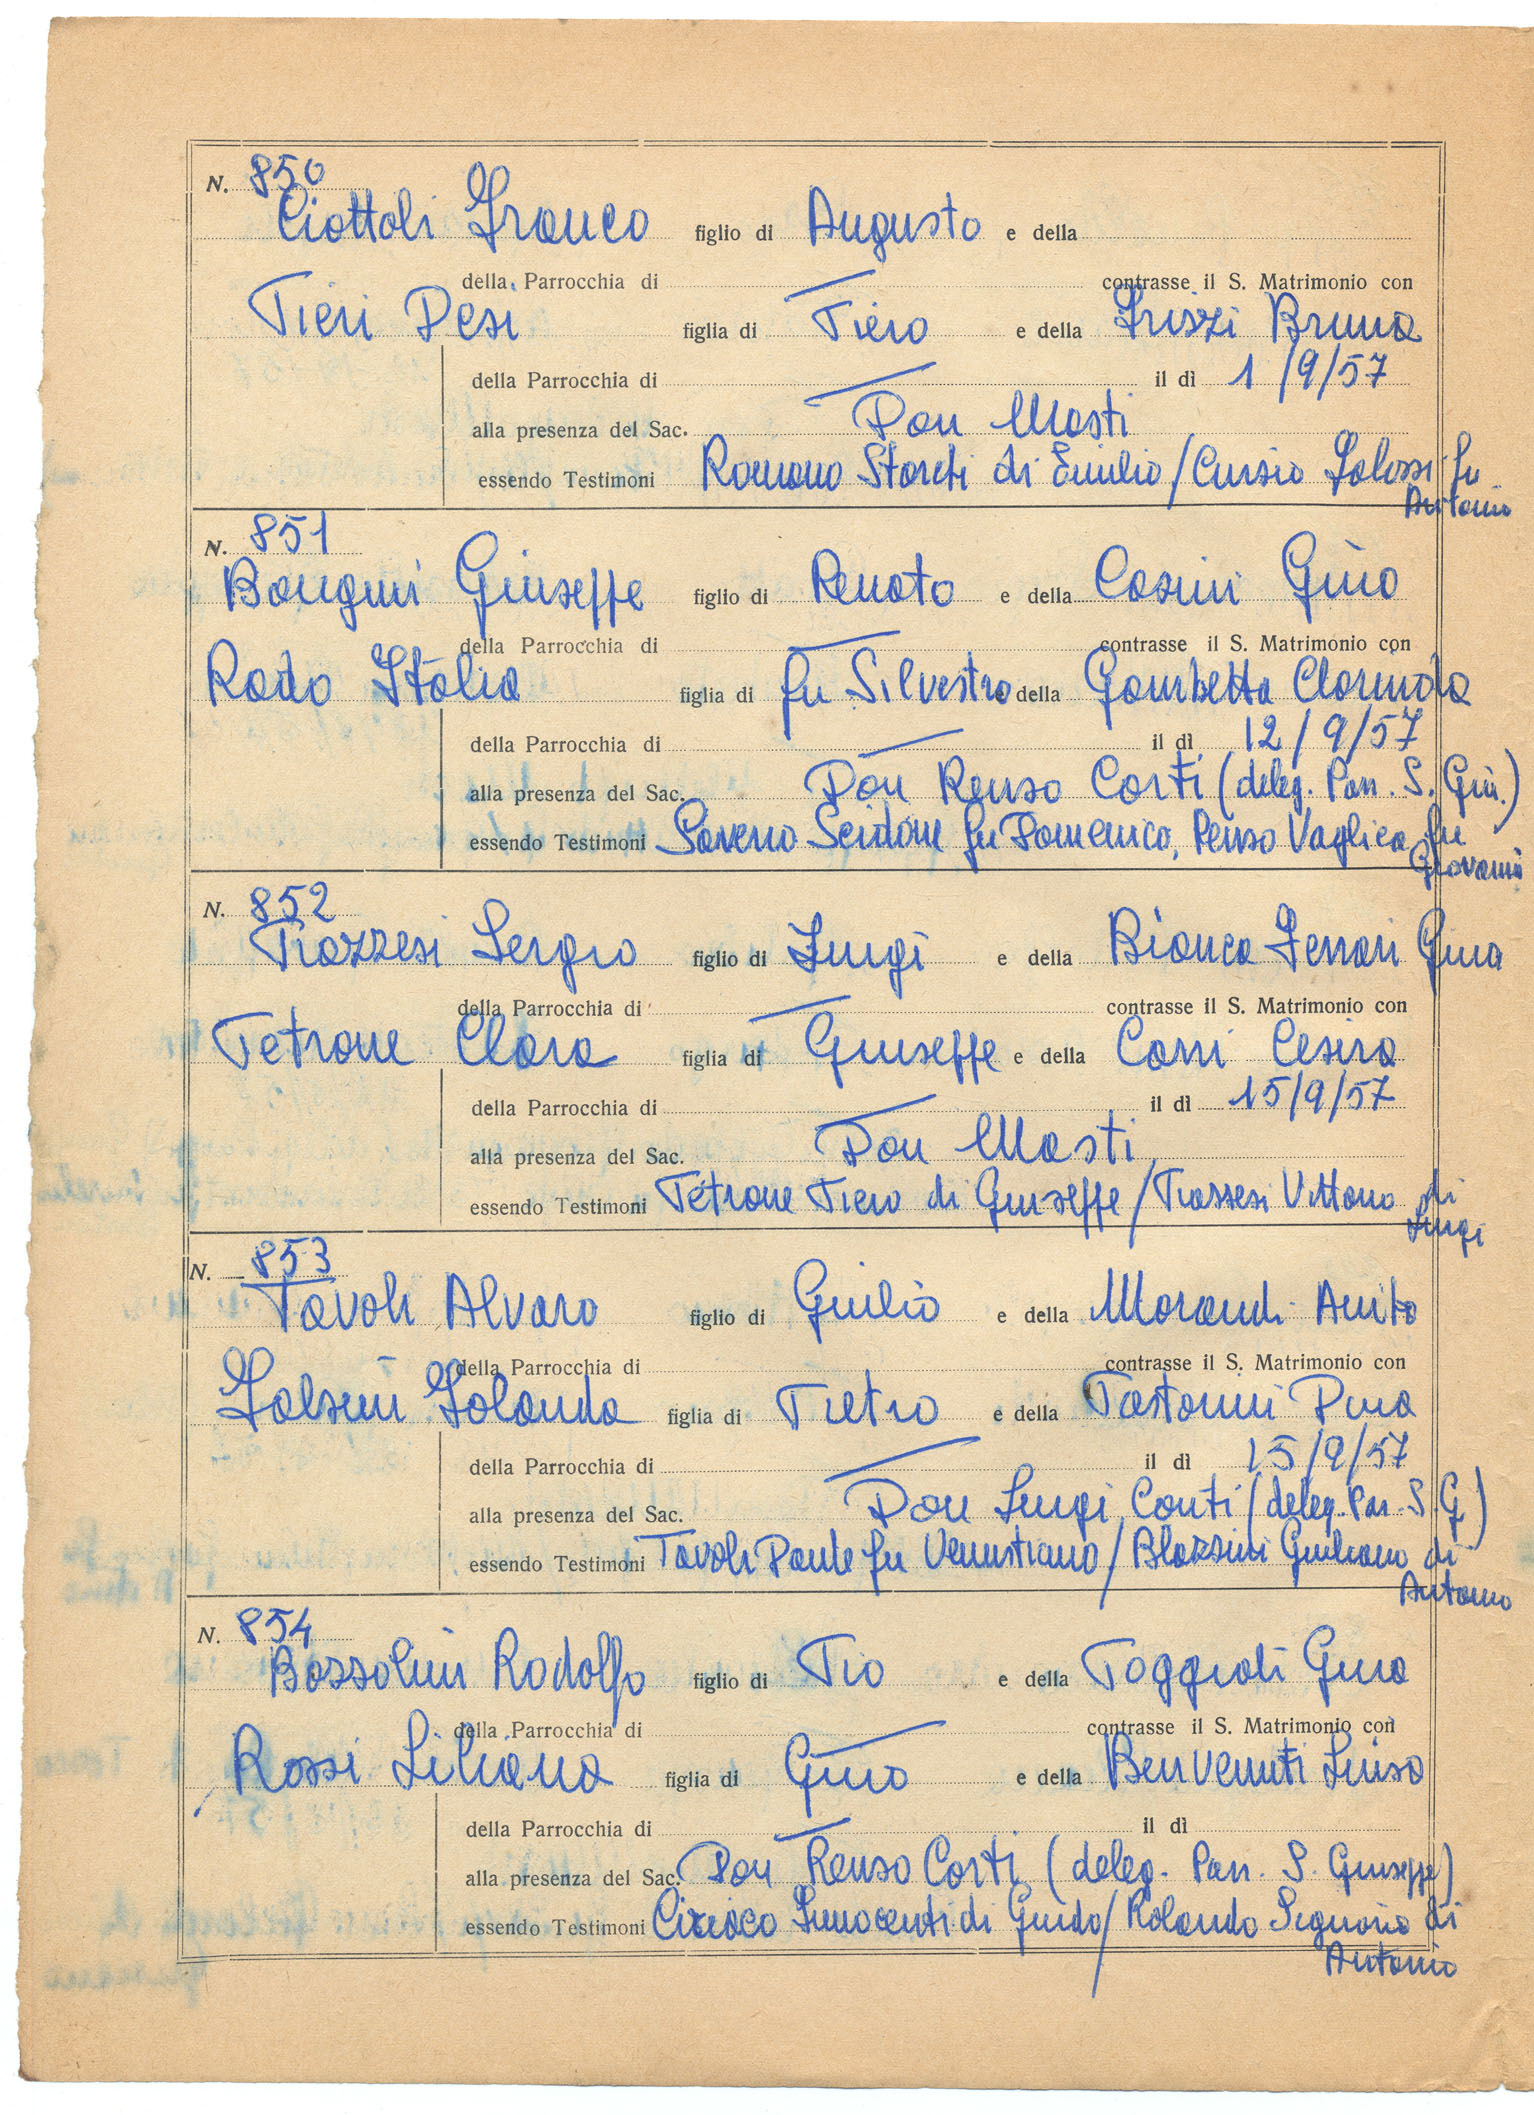 N. 850
Ciottoli Franco figlio di Augusto e della
della Parrocchia di contrasse il S. Matrimonio con
Pieri Desi figlia di Piero e della Frizzi Bruna
della Parrocchia di il dì 1/9/57
alla presenza del Sac. Don Masti
essendo Testimoni Romano Storchi di Emilio / Curzio Galossi fu
Antonio
N. 851
Bongini Giuseppe figlio di Renato e della Casini Gina
della Parrocchia di contrasse il S. Matrimonio con
Rado Italia figlia di fu Silvestro e della Gambetta Clorinda
della Parrocchia di il dì 12/9/57
alla presenza del Sac. Don Renzo Corti (deleg. Parr. S. Giu.)
essendo Testimoni Saverio Scidone fu Domenico, Renzo Vaglica fu
Giovanni
N. 852
Piazzesi Sergio figlio di Luigi e della Bianca Ferrari Gina
della Parrocchia di contrasse il S. Matrimonio con
Petrone Clara figlia di Giuseppe e della Corsi Cesira
della Parrocchia di il dì 15/9/57
alla presenza del Sac. Don Masti
essendo Testimoni Petrone Piero di Giuseppe / Piazzesi Vittorio di
Luigi
N. 853
Pavoli Alvaro figlio di Giulio e della Morandi Anita
della Parrocchia di contrasse il S. Matrimonio con
Falsini Jolanda figlia di Pietro e della Pastorini Dina
della Parrocchia di il dì 15/9/57
alla presenza del Sac. Don Luigi Conti (deleg. Parr. S. G.)
essendo Testimoni Pavoli Dante fu Venustiano / Blazzini Giuliano di
Antonio
N. 854
Bozzolini Rodolfo figlio di Pio e della Poggiali Gina
della Parrocchia di contrasse il S. Matrimonio con
Rossi Liliana figlia di Gino e della Benvenuti Luisa
della Parrocchia di il dì
alla presenza del Sac. Don Renzo Corti (deleg. Parr. S. Giuseppe)
essendo Testimoni Ciriaco Innocenti di Guido / Rolando Signorio di
Antonio